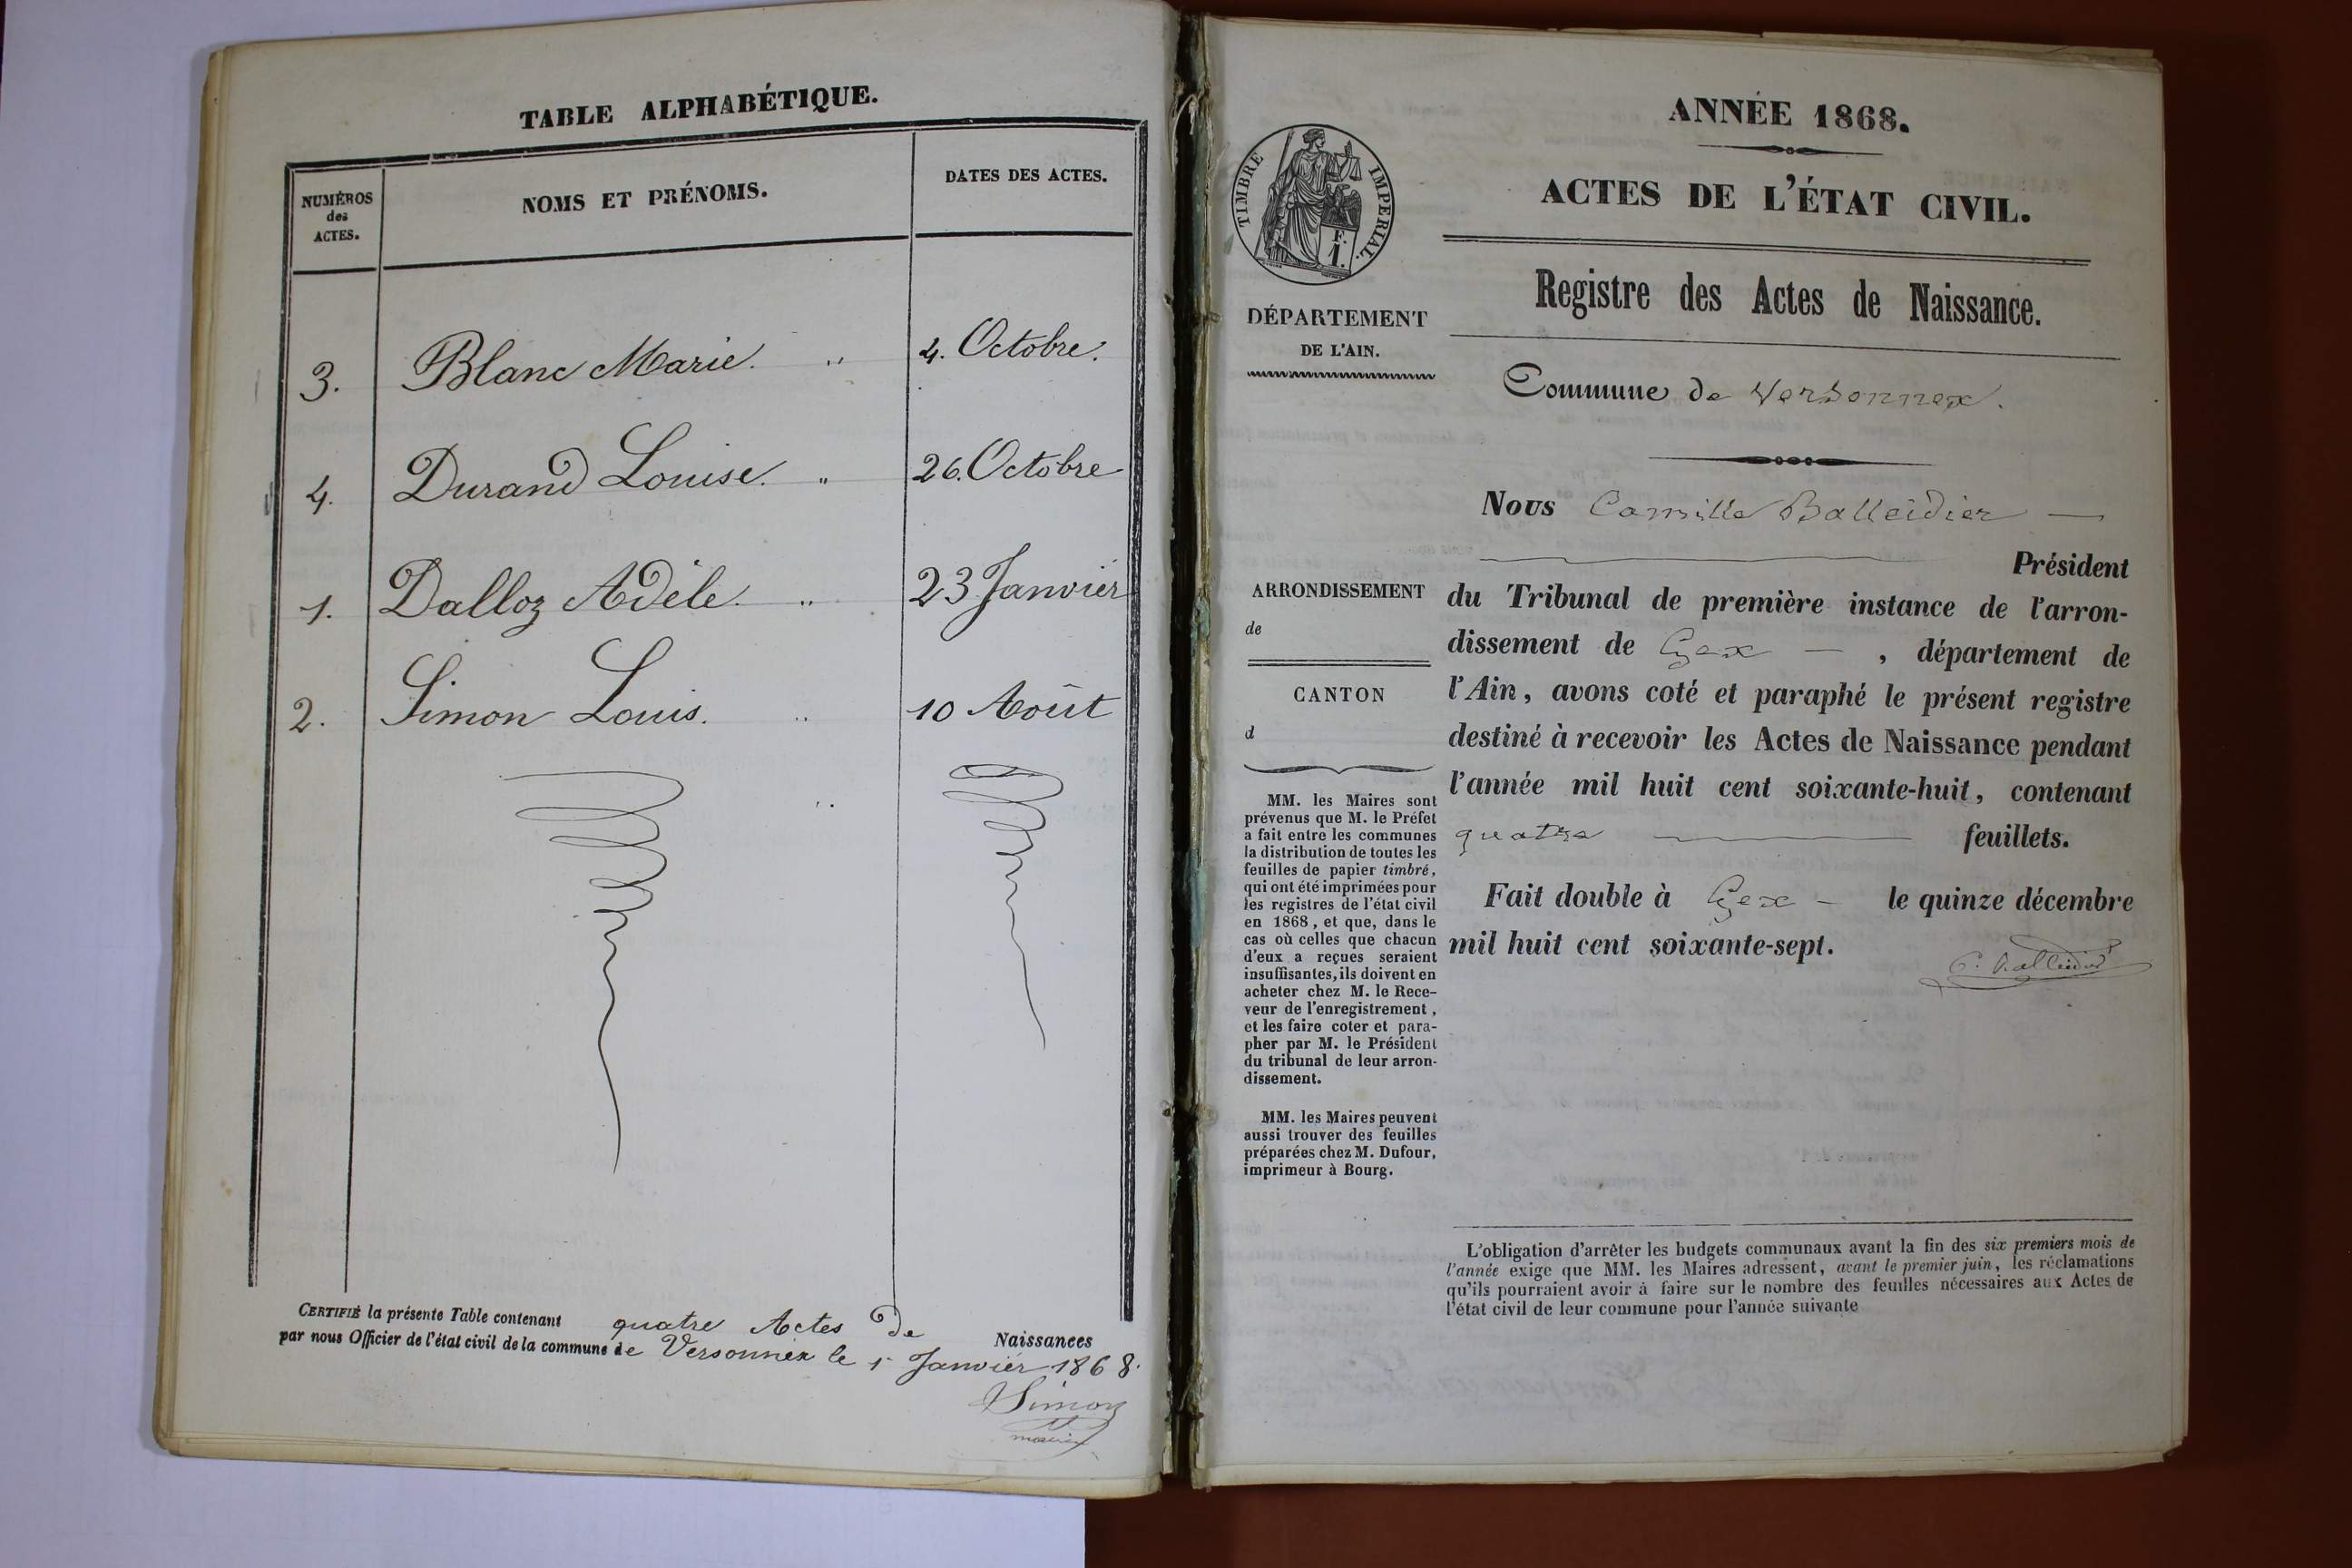 TABLE ALPHABÉTIQUE.
NUMÉROS
des
ACTES.
NOMS ET PRÉNOMS.
DATES DES ACTES.
3. Blanc Marie. " 4. Octobre.
4. Durand Louise. " 26. Octobre
1. Dalloz Adèle. " 23 Janvier
2. Simon Louis. " 10 Août
CERTIFIÉ la présente Table contenant quatre Actes De Naissances
par nous Officier de l'état civil de la commune de Versonnex le 1er Janvier 1868.
Simon
maire
ANNÉE 1868.
ACTES DE L'ÉTAT CIVIL.
TIMBRE IMPERIAL.
F.
1.
Registre des Actes de Naissance.
DÉPARTEMENT
DE L'AIN.
Commune de Versonnex.
Nous Camille Balleidier
Président
ARRONDISSEMENT
de
CANTON
d
du Tribunal de première instance de l'arron-
dissement de Gex , département de
l'Ain, avons coté et paraphé le présent registre
destiné à recevoir les Actes de Naissance pendant
l'année mil huit cent soixante-huit, contenant
quatre feuillets.
Fait double à Gex le quinze décembre
mil huit cent soixante-sept.
C. Balleidier
MM. les Maires sont
prévenus que M. le Préfet
a fait entre les communes
la distribution de toutes les
feuilles de papier timbré,
qui ont été imprimées pour
les registres de l'état civil
en 1868, et que, dans le
cas où celles que chacun
d'eux a reçues seraient
insuffisantes, ils doivent en
acheter chez M. le Rece-
veur de l'enregistrement,
et les faire coter et para-
pher par M. le Président
du tribunal de leur arron-
dissement.
MM. les Maires peuvent
aussi trouver des feuilles
préparées chez M. Dufour,
imprimeur à Bourg.
L'obligation d'arrêter les budgets communaux avant la fin des six premiers mois de
l'année exige que MM. les Maires adressent, avant le premier juin, les réclamations
qu'ils pourraient avoir à faire sur le nombre des feuilles nécessaires aux Actes de
l'état civil de leur commune pour l'année suivante